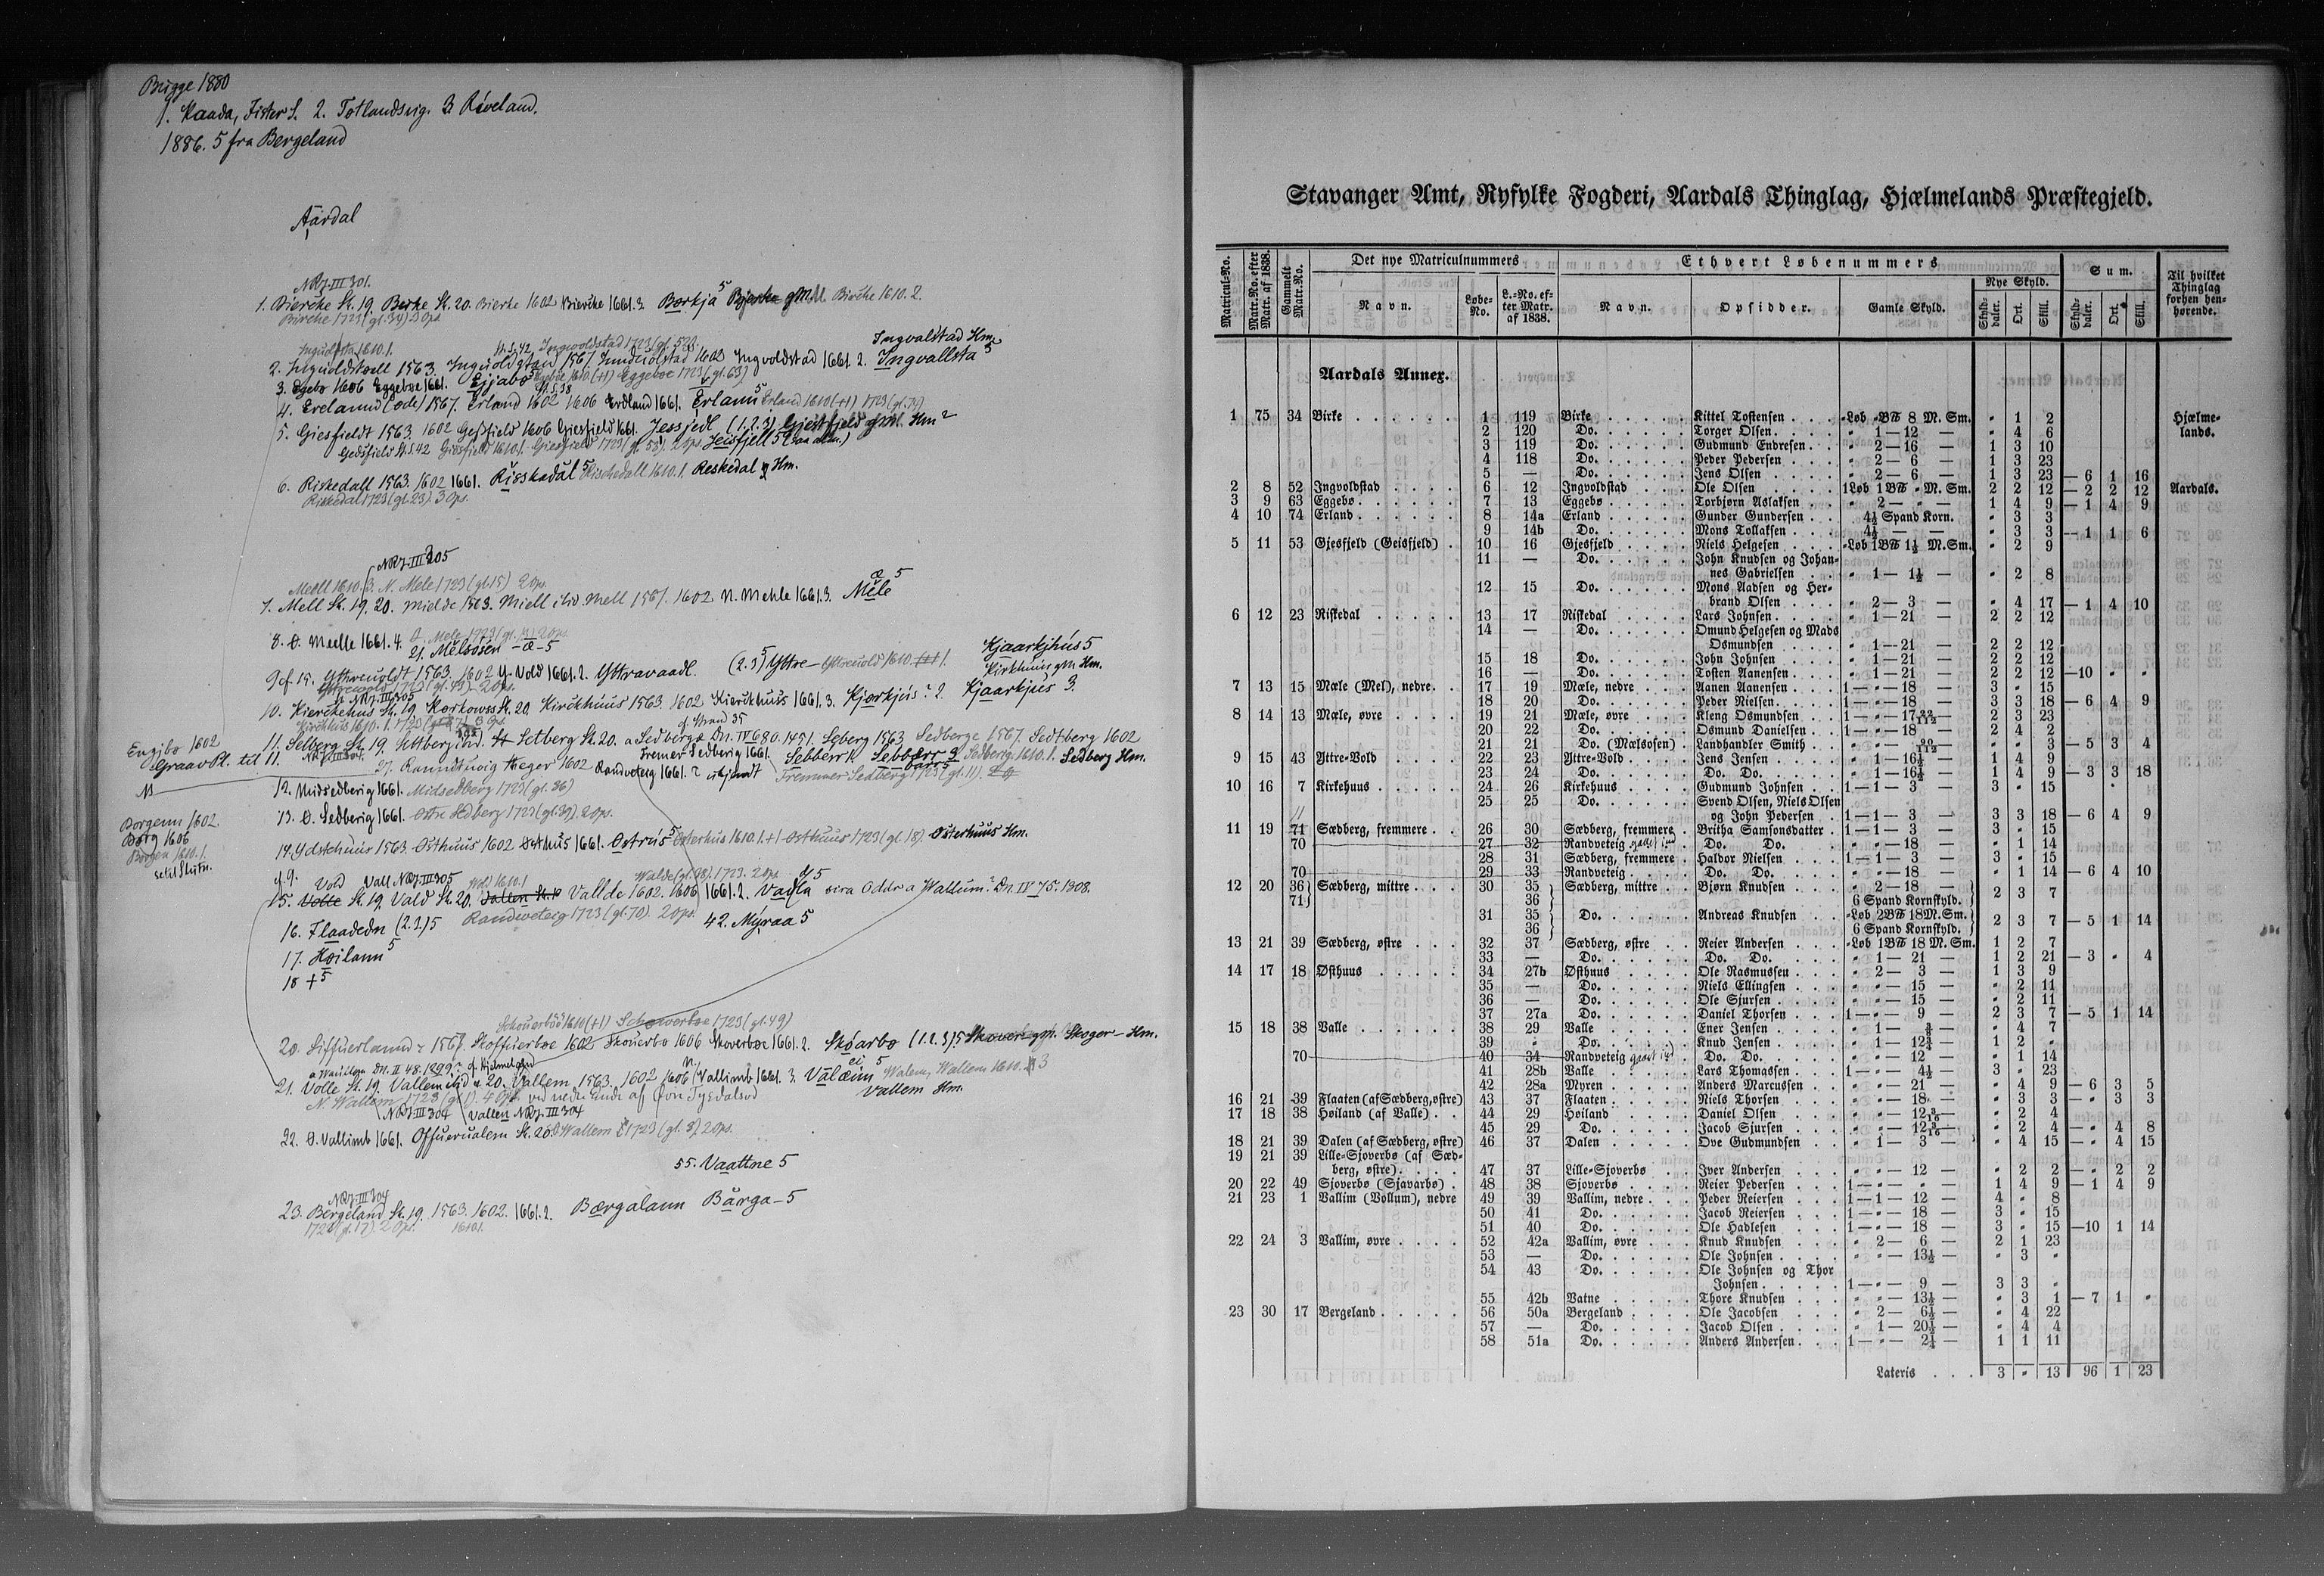 Brigge 1880
1. Kaada, Fister S. 2. Totlandsvig. 3 Riveland.
1886. 5 fra Bergeland
Aardal
NRJ. III 301.
1. Biercke St. 19. Berke St. 20. Bierke 1602 Biercke 1661. 3. Børkja 5 gM. Birche 1610. 2.
Birche 1723 (gl. 34) 3 Ops.
Ingvalstad Hm.
Ingvoldstad 1723 (gl. 52).
2. 1563. 1567 1602 Ingvoldstad 1661. 2. Ingvallsta 5
3. Egebø 1606 Eggebøe 1661. Eggeboe 1723 (gl. 63)
4. Erelannd (øde) 1567. Erland 1602 1606 Erdland 1661. Erlann 5 Erland 1610 (+1) 1723 (gl. 74)
5. Giesfieldt 1563. 1602 1606 Giesfield 1661. Jessjedl (1. 2. 3) Hm 2
6. Riskedall 1563. 1602 1661. Risskadal 5 Rischedall 1610. 1. Reskedal Hm.
Riskedal 1723 (gl. 23). 3 Ops.
NRJ. III 305
Meell 1610. 3. N. Mele 1723 (gl. 15) 2 Ops.
7. Mell St. 19. 20. 1563. Miell ibid. Mell 1567. 1602 N. Mehle 1661. 3. Mele 5
8. O. Meelle 1661. 4. O. Mele 1723
21. Mélsosen – æ – 5
Kjaarkjhús 5
9 cf. 15. Yttreuoldt 1563. 1602 Y. Vold 1661. 2. Yttravaadl. (2. 3) 5 Yttre –
Kirkhuus gM. Hm.
10. Kierckehus St. 19 St. 20. Kirckhuus 1563. 1602 Kierckhuus 1661. 3. Kjørkjús? 2. Kjaarkjús 3.
Engibø 1602
Graav Pl. til 11.
11. Selberg St. 19. Settberg ibid. Setberg St. 20. a Sedbergæ Dn. IV 680. 1451. Seberg 1563 Sedberge 1567. Sedtberg 1602
Fremer Sedberig 1661. Sebberrk Sedberg 1610. 1. Sedberg Hm.
27. 1602 Randveteig 1661. 2 Fremmer Sedberg 1723 (gl. 11)
12. Midsedberig 1661. Midsedberg 1723 (gl. 36)
13. O. Sedberig 1661. Ostre Sedberg 1723 (gl. 39). 2 Ops.
Borgenn 1602.
Borg 1606
Borgen 1610. 1.
14. 1563. Osthuus 1602 Osthus 1661. Ostrús 5 Osterhus 1610. 1. +1 Osthuus 1723 (gl. 18). Østerhuus Hm.
cf. 9. Vold Vall. NRJ. III 305
15. Volle St. 19. Vald St. 20. Vallde 1602. 1606 1661. 2. Vadla sira Oddr a Wallum? Dn. IV 75. 1308.
Randweteig 1723 (gl. 70). 2 Ops. 42. Myraa 5
16. Flaadedn (2. 3.) 5
17. Høilann 5
18 + 5
Schowerboe 1723 (gl. 49)
20. 1567. Skoffuerbøe 1602 Skouerbø 1606 Skoverbøe 1661. 2. Skóarbø (1. 2. 3) 5 Skoger – Hm.
21. Volle St. 19. Vallem 20. Vallem 1563. 1602 1606 Vallimb 1661. 3. Valæim 5 Walem, Wallem 1610.
N. Wallem 1723 Vallem Hm.
NRJ. III 304 Vallen NRJ. III 304
22. O. Vallimb 1661. Offuerualem St. 20. O Wallem 1723 (gl. 3). 2 Ops.
55. Vaattne 5
NRJ. III 304
23. Bergeland St. 19. 1563. 1602. 1661. 2. Bærgalann Bårga – 5
1723 (gl. 17) 2 Ops. 1610. 1.
Stavanger Amt, Ryfylke Fogderi, Aardals Thinglag, Hjælmelands Præstegjeld.
Matricul-No. Matr.No. efter Matr. af 1838. Gammelt Matr.No. Det nye Matriculnummers Ethvert Løbenummers Sum. Til hvilket Thinglag forhen henhørende.
Navn. Løbe-No. L.-No. efter Matr. af 1838. Navn. Opsidder. Gamle Skyld. Nye Skyld. Skylddaler. Ort. Skill. Skylddaler. Ort. Skill.
Aardals Annex.
1 75 34 Birke 1 119 Birke Kittel Tostensen "Løb "B℔ 8 M. Sm. " 1 2 Hjælmelands.
2 120 Do. Torger Olsen " 1—12 — " 4 6
3 119 Do. Gudmund Endresen " 2—16 — 1 3 10
4 118 Do. Peder Pedersen " 2— 6 — 1 3 23
5 — Do. Jens Olsen " 2— 6 — 1 3 23 — 6 1 16
2 8 52 Ingvoldstad 6 12 Ingvoldstad Ole Olsen 1 Løb 1 B℔ " M. Sm. 2 2 12 — 2 2 12 Aardals.
3 9 63 Eggebø 7 13 Eggebø Torbjørn Aslaksen " 2— " — 1 4 9 — 1 4 9
4 10 74 Erland 8 14a Erland Gunder Gundersen 4½ Spand Korn. " 3 3
9 14b Do. Mons Tollaksen 4½ — — " 3 3 — 1 1 6
5 11 53 Gjesfjeld (Geisfjeld) 10 16 Gjesfjeld Niels Helgesen "Løb 1B℔ 1½ M.Sm. " 2 9
11 — Do. John Knudsen og Johannes Gabrielsen " 1— 1½ — " 2 8
12 15 Do. Mons Aadsen og Herbrand Olsen " 2— 3 — " 4 17 — 1 4 10
6 12 23 Riskedal 13 17 Riskedal Lars Johnsen " 1—21 — 2 2 12
14 — Do. Omund Helgesen og Mads Osmundsen " 1—21 — 2 2 12
15 18 Do. John Johnsen " 1—21 — 2 2 12
16 — Do. Tosten Aanensen " 1—21 — 2 2 12 —10 " "
7 13 15 Mæle (Mel), nedre 17 19 Mæle, nedre Aanen Aanensen 1— " —18 — 3 " 15
18 20 Do. Peder Nielsen 1— " —18 — 3 3 18 — 6 4 9
8 14 13 Mæle, øvre 19 21 Mæle, øvre Kleng Osmundsen 1— " —17 22/112 2 3 23
20 22 Do. Osmund Danielsen 1— " —18 — 2 4 2
21 21 Do. (Mælsosen) Landhandler Smith " — " — 20/112 " " 3 — 5 3 4
9 15 43 Yttre-Vold 22 23 Yttre-Vold Jens Jensen " 1—16½ — 1 4 9
23 24 Do. Do. Do. " 1—16½ — 1 4 9 — 3 3 18
10 16 7 Kirkehuus 24 26 Kirkehuus Gudmund Johnsen 1—1— 3 — 3 " 15
25 25 Do. Svend Olsen, Niels Olsen og John Pedersen 1—1— 3 — 3 3 18 — 6 4 9
11
11 19 71 Sædberg, fremmere 26 30 Sædberg, fremmere Britha Samsonsdatter 1—1— 3 — 3 " 15
70 27 32 Randveteig Do. Do. " — " —18 — " 1 14
28 31 Sædberg, fremmere Haldor Nielsen 1—1— 3 — 3 " 15
70 29 33 Randveteig Do. Do. " — " —18 — " 1 14 — 6 4 10
12 20 36 71 Sædberg, mittre 30 35 36 Sædberg, mittre Bjørn Knudsen " 2—18 — 6 Spand Kornskyld. 2 3 7
31 35 36 Do. Andreas Knudsen "Løb 2B℔ 18M. Sm. 6 Spand Kornskyld. 2 3 7 — 5 1 14
13 21 39 Sædberg, østre 32 37 Sædberg, østre Reier Andersen "Løb 1B℔ 18 M. Sm. 1 2 7
33 — Do. Do. Do. " 1— 21 — 1 2 21 — 3 " 4
14 17 18 Østhuus 34 27b Østhuus Ole Rasmussen " 2— 3 — 1 3 9
35 — Do. Niels Ellingsen " — " — 15 — " 2 11
36 — Do. Ole Sjursen " — " — 15 — " 2 11
37 27a Do. Daniel Thorsen 1— " — 9 — 2 3 7 — 5 1 14
15 18 38 Valle 38 29 Valle Ener Jensen " 1— ¾ — " 4 7
39 " Do. Knud Jensen " 1— 12¾ — 1 2 "
70 40 34 Randveteig Do. Do. " — " — 12 — " 1 14
41 28b Valle Lars Thomassen 1— " — 4½ — 3 " 23
42 28a Myren Anders Marcussen " — " — 21 — " 4 9 — 6 3 5
16 21 39 Flaaten (af Sædberg, østre) 43 37 Flaaten Niels Thorsen " — " — 18 — " 3 3 — " 3 3
17 18 38 Høiland (af Valle) 44 29 Høiland Daniel Olsen " — " — 12 3/16 — " 2 4
45 29 Do. Jacob Sjursen " — " — 12 3/16 — " 2 4 — " 4 8
18 21 39 Dalen (af Sædberg, østre) 46 37 Dalen Ove Gudmundsen " 1— 3 — " 4 15 — " 4 15
19 21 39 Lille-Sjoverbø (af Sædberg, østre) 47 37 Lille-Sjoverbø Iver Andersen " — " — 12 — " 2 2 — " 2 2
20 22 49 Sjoverbø (Sjavarbø) 48 38 Sjoverbø Reier Pedersen 1— " — " — 1 4 9 — 1 4 9
21 23 1 Vallim (Vollum), nedre 49 39 Vallim, nedre Peder Reiersen 1—1— 12 — 4 " 8
50 41 Do. Jacob Reiersen 1— " — 18 — 3 " 15
51 40 Do. Ole Hadlesen 1— " — 18 — 3 " 15 —10 1 14
22 24 3 Vallim, øvre 52 42a Vallim, øvre Knud Knudsen " 2— 6 — 2 1 23
53 — Do. Ole Johnsen " — " — 13½ — " 3 "
54 43 Do. Ole Johnsen og Thor Johnsen 1— " — 9 — 3 3 "
55 42b Vatne Thore Knudsen " — " — 13½ — " 3 1 — 7 1 "
23 30 17 Bergeland 56 50a Bergeland Ole Jacobsen " 2— 6¼ — " 4 22
57 — Do. Jacob Olsen " 1— 20¼ — " 4 4
58 51a Do. Anders Andersen 1— " — 2¼ — 1 1 11
Lateris 3 " 13 96 1 23